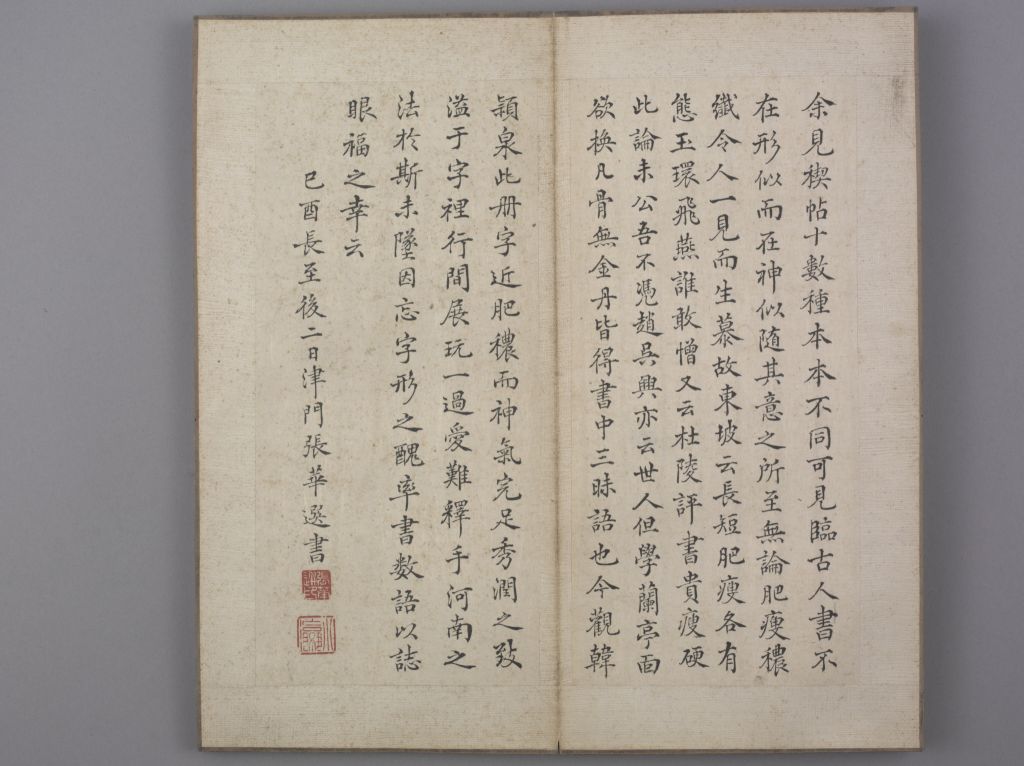 余見禊帖十數種本本不同可見臨古人書不
在形似而在神似隨其意之所至無論肥瘦穠
纖令人一見而生慕故東坡云長短肥瘦各有
態玉環飛燕誰敢憎又云杜陵評書貴瘦硬
此論未公吾不憑趙吳興亦云世人但學蘭亭面
欲換凡骨無金丹皆得書中三昧語也今觀韓
潁泉此册字近肥穠而神氣完足秀潤之致
溢于字裡行間展玩一過愛難釋手河南之
法於斯未墜因忘字形之醜率書数語以誌
眼福之幸云
己酉長至後二日津門張華選書